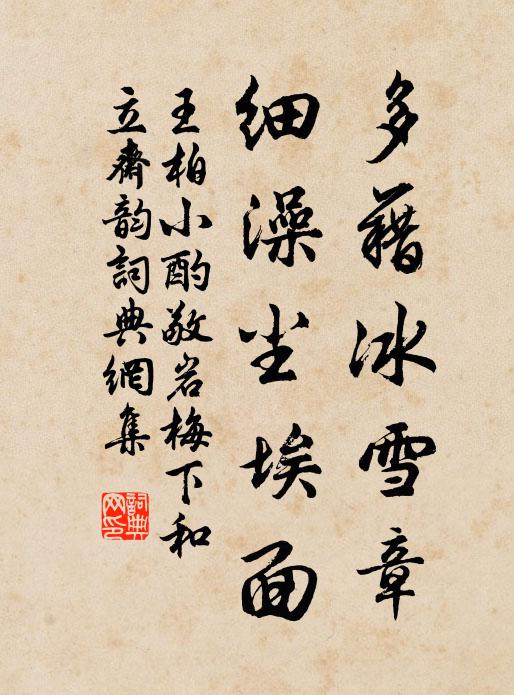 多藉冰雪章
细澡尘埃面
王柏小酌敬岩梅下和
立齋韵詞典網集
詞典网印